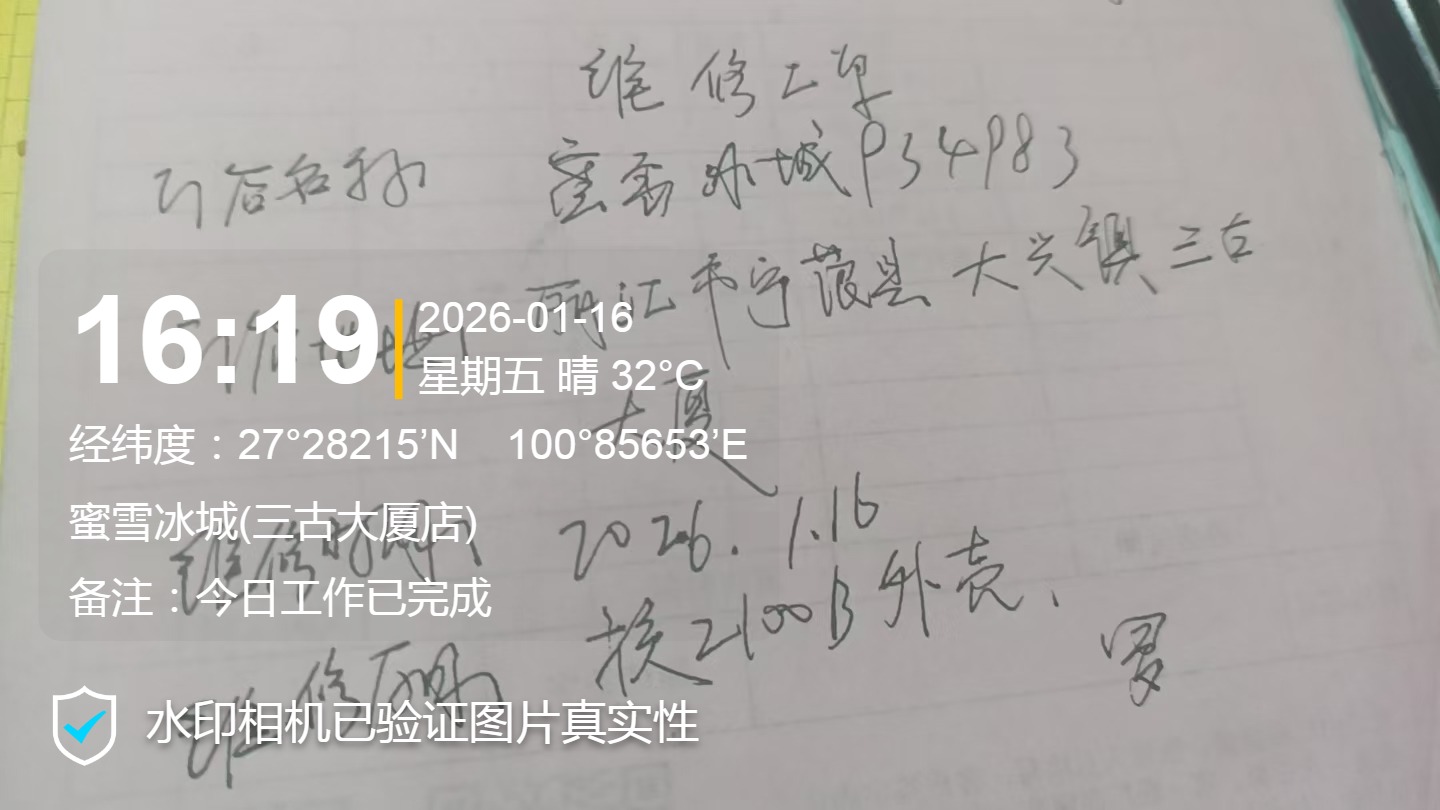 维修工单
门店名称 蜜雪冰城P34983
门店地址 丽江市宁蒗县大兴镇三古
大厦
维修时间 2026.1.16
维修 换2100B外壳、
罗
16:19
2026-01-16
星期五 晴 32°C
经纬度：27°28215’N 100°85653’E
蜜雪冰城(三古大厦店)
备注：今日工作已完成
水印相机已验证图片真实性